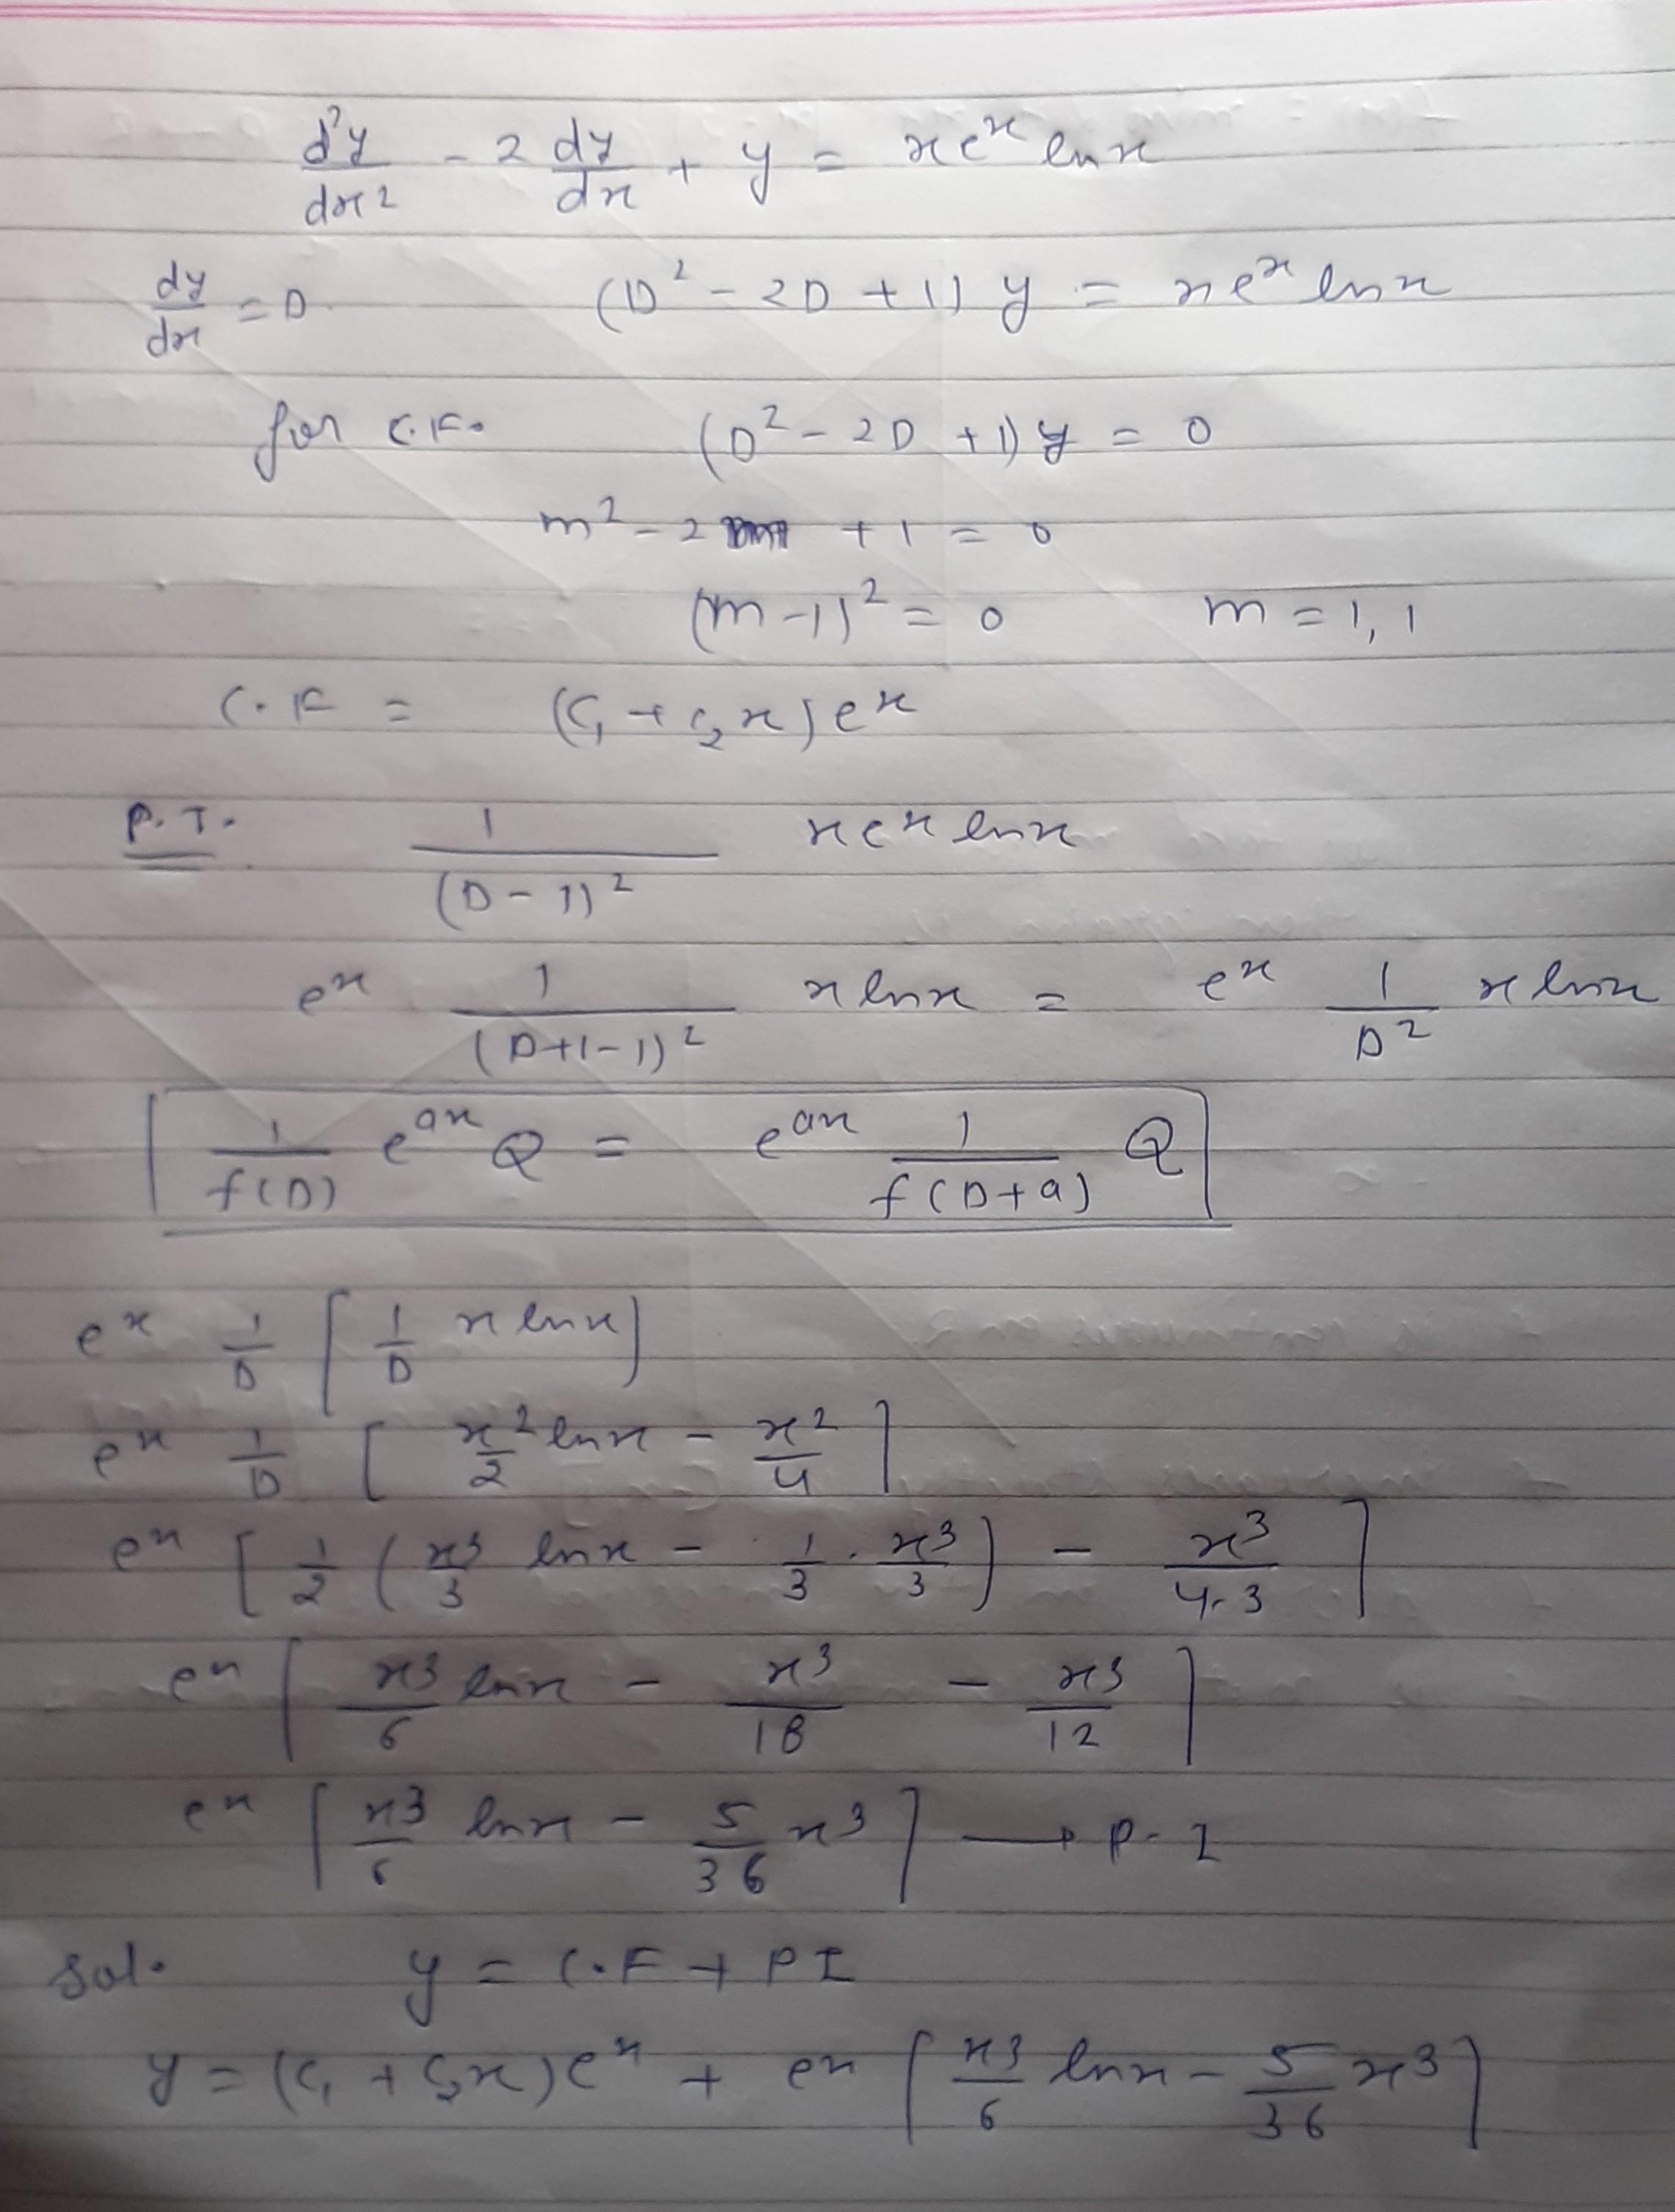 d²y/dx² - 2 dy/dx + y = xeˣ ln x
dy/dx = D (D² - 2D + 1) y = xeˣ ln x
for C.F. (D² - 2D + 1) y = 0
m² - 2m + 1 = 0
(m - 1)² = 0 m = 1, 1
C.F = (C₁ + C₂x)eˣ
P.I. 1/(D - 1)² xeˣ ln x
eˣ 1/(D+1-1)² x ln x = eˣ 1/D² x ln x
1/f(D) eᵃˣ Q = eᵃˣ 1/f(D+a) Q
eˣ 1/D [1/D x ln x]
eˣ 1/D [x²/2 ln x - x²/4]
eˣ [1/2 (x³/3 ln x - 1/3 · x³/3) - x³/4·3]
eˣ [x³/6 ln x - x³/18 - x³/12]
eˣ [x³/6 ln x - 5/36 x³] → P.I
Sol. y = C.F + PI
y = (C₁ + C₂x)eˣ + eˣ [x³/6 ln x - 5/36 x³]